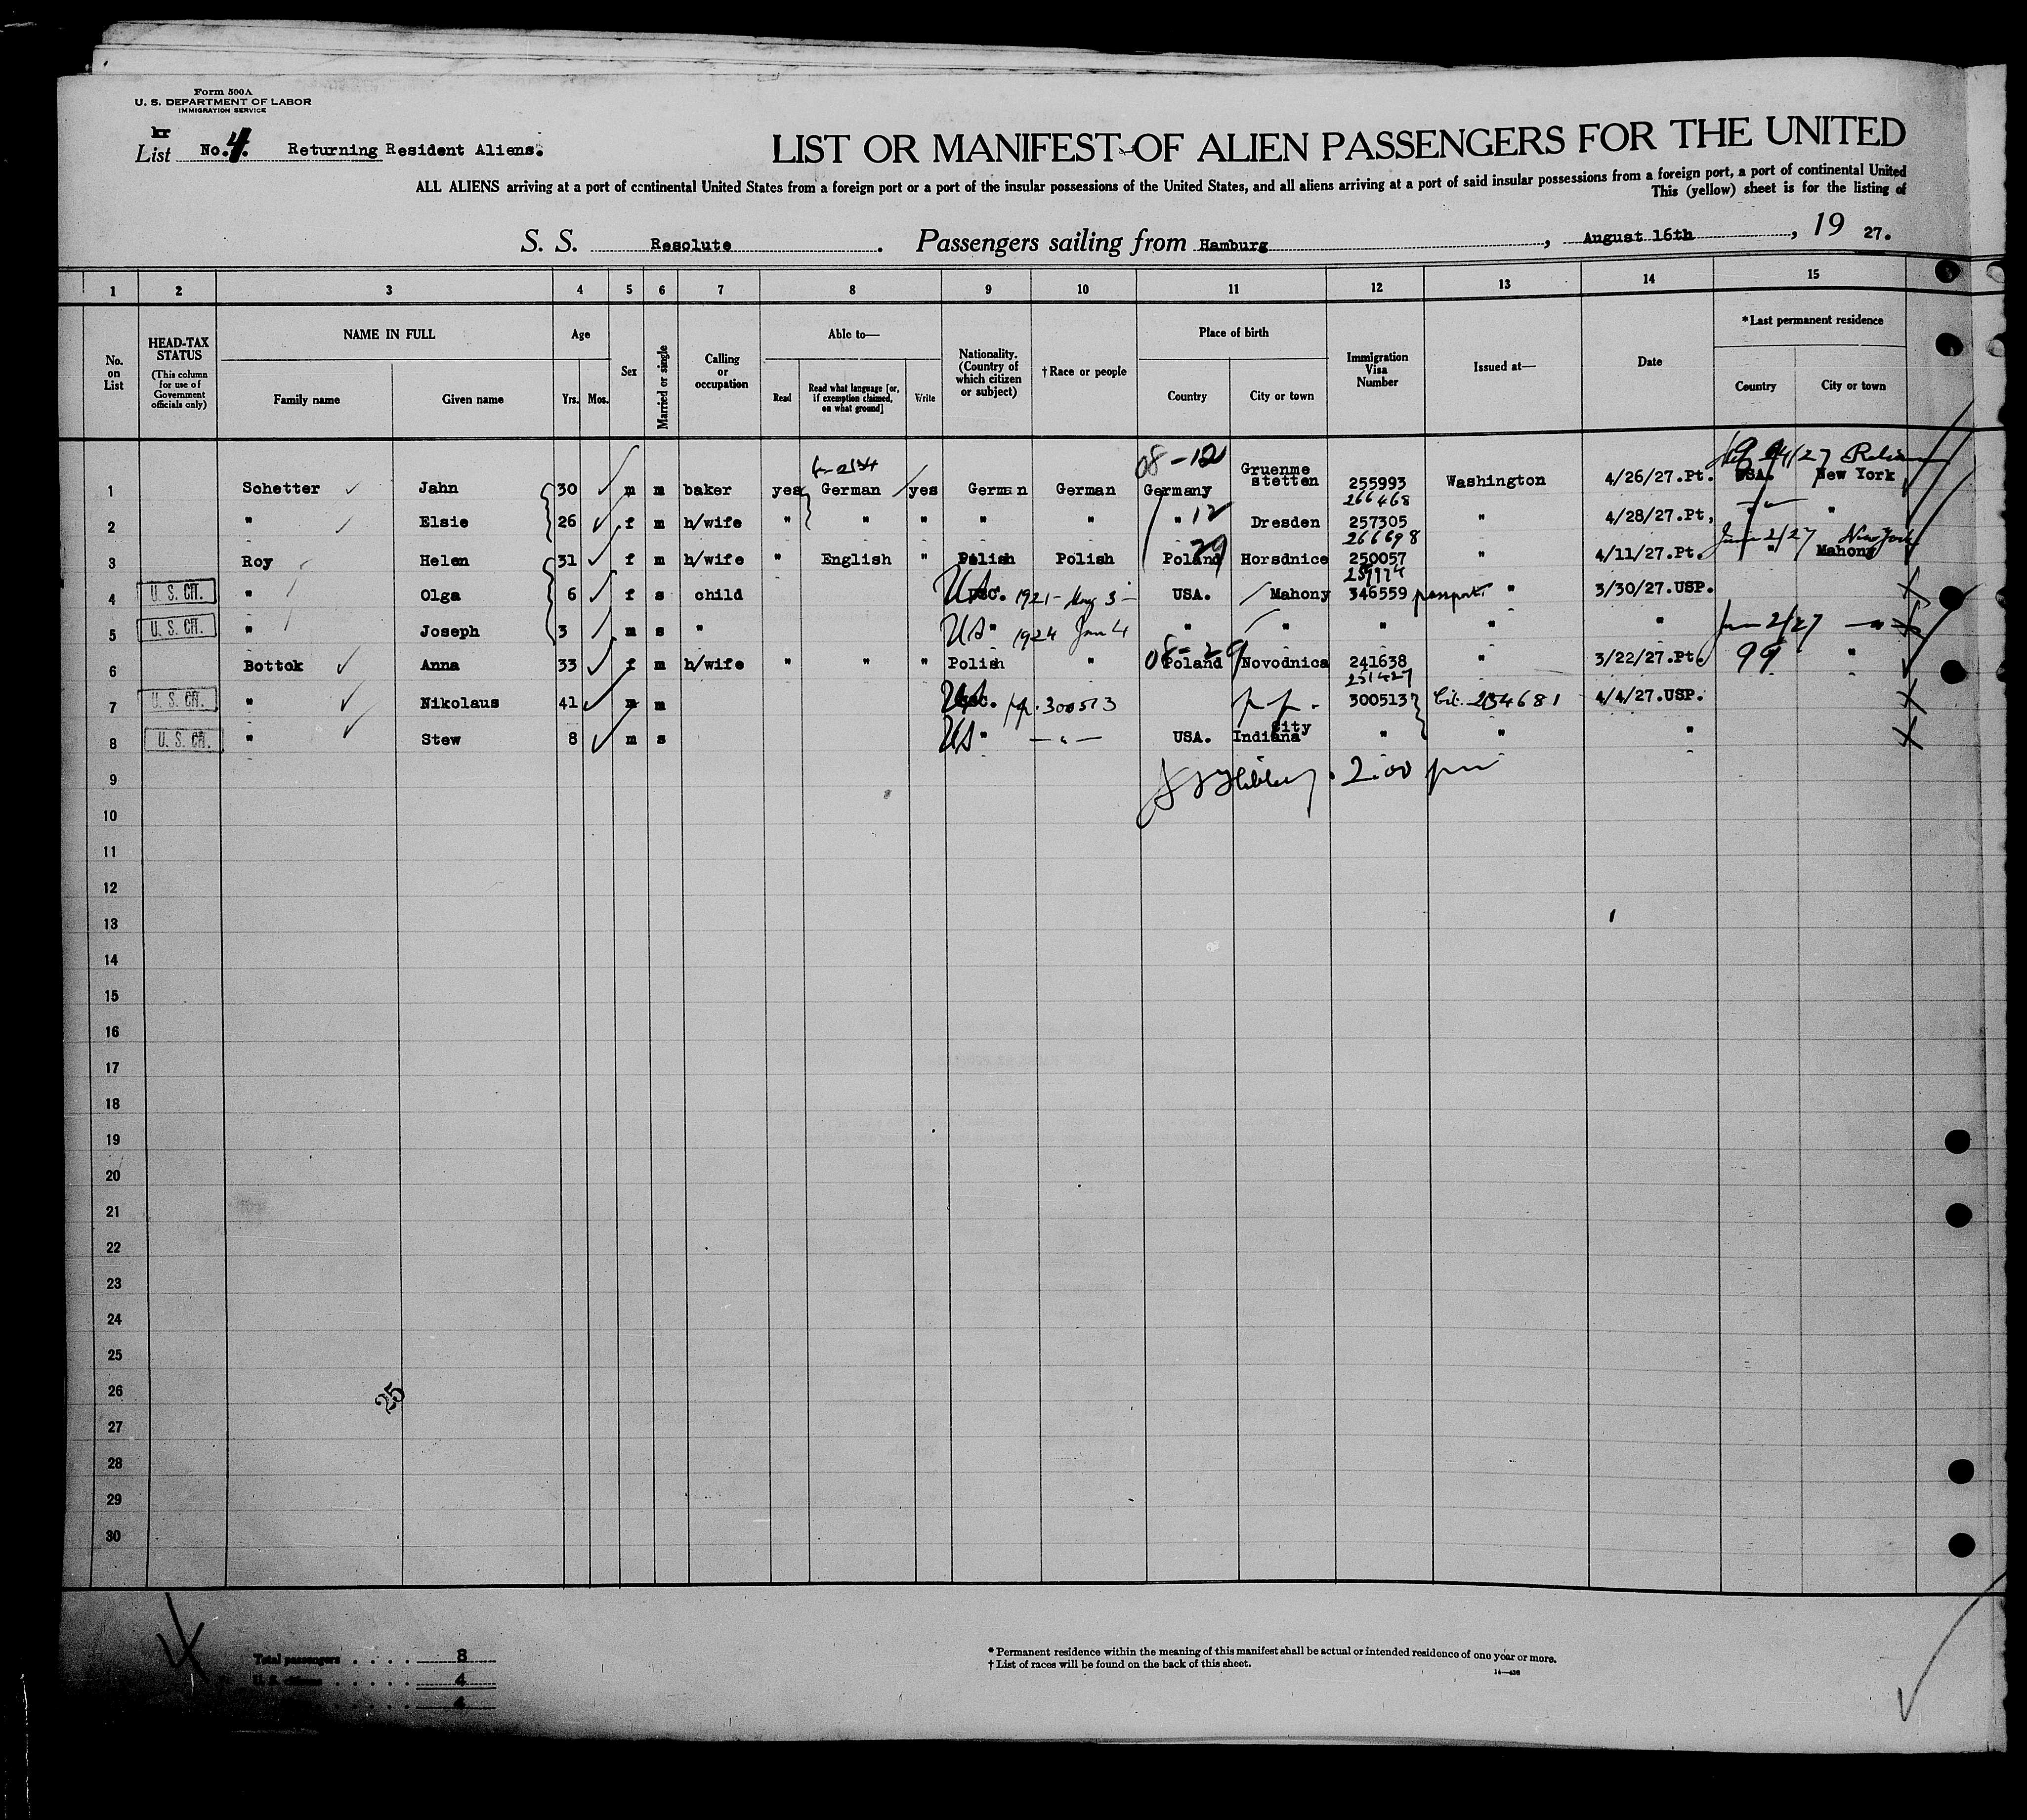 Form 500A
U. S. DEPARTMENT OF LABOR
IMMIGRATION SERVICE
kr
List No. 4. Returning Resident Aliens.
LIST OR MANIFEST OF ALIEN PASSENGERS FOR THE UNITED
ALL ALIENS arriving at a port of continental United States from a foreign port or a port of the insular possessions of the United States, and all aliens arriving at a port of said insular possessions from a foreign port, a port of continental United
This (yellow) sheet is for the listing of
S. S. Resolute. Passengers sailing from Hamburg, August 16th, 19 27.
1 2 3 4 5 6 7 8 9 10 11 12 13 14 15
No. on List
HEAD-TAX STATUS (This column for use of Government officials only)
NAME IN FULL Family name Given name
Age Yrs. Mos.
Sex
Married or single
Calling or occupation
Able to— Read Read what language [or, if exemption claimed, on what ground] Write
Nationality. (Country of which citizen or subject)
† Race or people
Place of birth Country City or town
Immigration Visa Number
Issued at—
Date
* Last permanent residence Country City or town
08-12
1 Schetter Jahn 30 m m baker yes German yes German German Germany Gruenmestetten 255993 Washington 4/26/27.Pt. USA. New York
266468
2 " Elsie 26 f m h/wife " " " " " " 12 Dresden 257305 " 4/28/27.Pt, " "
266698
June 2/27 New York
3 Roy Helen 31 f m h/wife " English " Polish Polish Poland 29 Horsdnice 250057 " 4/11/27.Pt. " Mahony
259974
4 U. S. CIT. " Olga 6 f s child US 1921- May 3- USA. Mahony 346559 passport " 3/30/27.USP.
5 U. S. CIT. " Joseph 3 m s " US " 1924 Jan 4 " " " " " June 2/27
08-29
6 Bottok Anna 33 f m h/wife " " " Polish " Poland Novodnica 241638 " 3/22/27.Pt. 99 "
251427
7 U. S. CIT. " Nikolaus 41 m m US pp. 300513 pp. 300513 Cit. 254681 4/4/27.USP.
8 U. S. CIT. " Stew 8 m s US " — " — USA. Indiana City " " "
2.00 pm
9
10
11
12
13
14
15
16
17
18
19
20
21
22
23
24
25
26
27
28
29
30
25
Total passengers . . . . 8
U. S. citizens . . . . . 4
4
* Permanent residence within the meaning of this manifest shall be actual or intended residence of one year or more.
† List of races will be found on the back of this sheet.
14—438